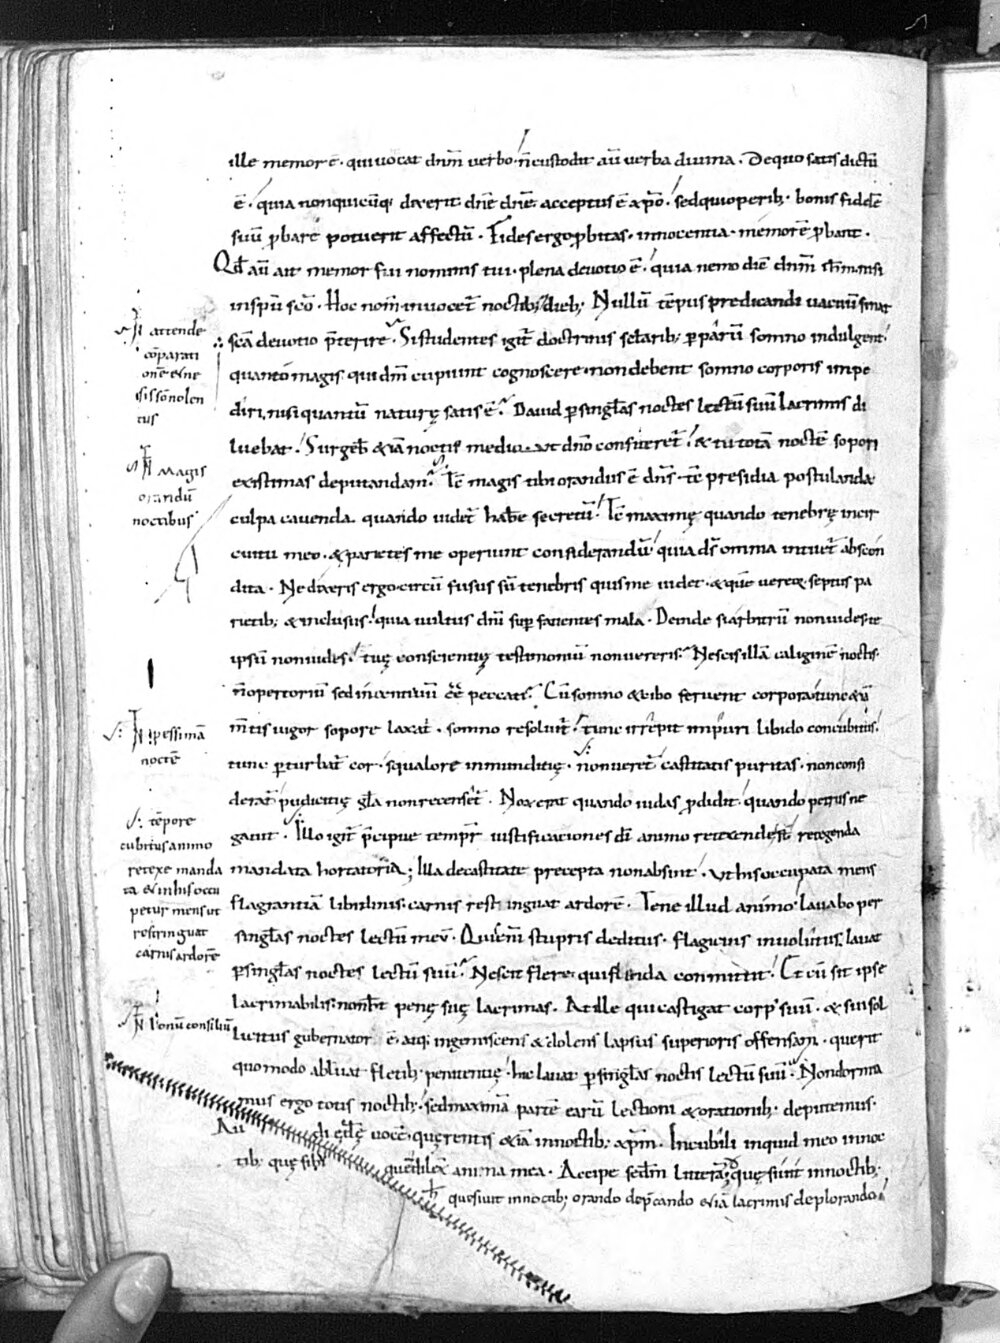 ille memor ē· qui uocat dnm̄ uerbo· n̄ custodit aū uerba diuina· De quo satis dictū
ē· quia non quicūq; dixerit dnē dnē acceptus ē xp̄o· sed qui operib; bonis fidelē
suū p̄bare potuerit affectū· Fides ergo p̄bitas· innocentia· memorē p̄bant·
Qd̄ aū ait memor fui nominis tui· plena deuotio ē· quia nemo dic̄ dnm̄ ih̄m nisi
in spū sc̄o· Hoc nom̄ inuocet̄ noctib; dieb; Nullū tēpus predicandi uacuū sinat
sc̄a deuotio p̄terire· Si studentes igit̄ doctrinis sc̄larib; p parūū somno indulgent
quanto magis qui dm̄ cupiunt cognoscere· non debent somno corporis impe
diri, nisi quantū naturę satis ē· Dauid p singl̄as noctes lectū suū lacrimis di
luebat· Surgeb̄ & iā noctis medio ut dn̄o confiteret̄· & tu totā noctē sopori
existimas deputandam· Tc̄ magis tibi orandus ē dn̄s· tc̄ presidia postulanda
culpa cauenda quando uidet̄ hab̄e secretū· Tc̄ maximę quando tenebrę in cir
cuitu meo· & parietes me operiunt considerandū· quia ds̄ omnia intuet̄ abscon
dita· Ne dixeris ergo circū fusus sū tenebris quis me uidet· & quē uereor septus pa
rietib; & inclusus· quia uultus dn̄i sup̄ facientes mala· Deinde si arbitrū non uides te
ipsū non uides· tuę conscientię testimoniū non uereris· Nescis illā caliginē noctis
n̄ opertoriū sed incentiuū eē peccati· Cū somno & cibo feruent corpora tunc & ū
m̄tis uigor sopore laxat̄· somno resoluit̄· tunc irrepit impuri libido concubitus·
tunc p̄turbat̄ cor· squalore inmunditię· non ueret̄ castitatis puritas· non consi
derat̄ pudicitię gl̄a non recenset̄· Nox erat quando iudas p̄didit· quando petrus ne
gauit· Illo igit̄ p̄cipue tempr̄ iustificationes dī animo retexendę s̄t recegenda
mandata hortatoria; Illa de castitate precepta non absint· ut his occupata mens
flagrantiā libidinis carnis restinguat ardorē· Tene illud animo· lauabo per
singl̄as noctes lectū meū· Qui eni stupris deditus· flagitiis inuolutus, lauat
p singl̄as noctes lectū suū· Nescit flere qui flenda committit· Et cū sit ipse
lacrimabilis· non h̄t penę suę lacrimas· At ille qui castigat corp̄ suū· & sui sol
licitus gubernator ē· atq; ingemiscens & dolens lapsus superioris offensam· querit
quomodo abluat fletib; penitentię· hic lauat p singl̄as noctis lectū suū· Non dormia
mus ergo totis noctib; sed maximā partē earū lectioni & orationib; deputemus·
Au di ęcl̄ę uocē· quęrentis & iā in noctib; xp̄m· In cubili inquid meo in noc
tib; quę siui quē dilex̄ anima mea· Accipe sed̄m litterā; quę sunt in noctib;
quesiuit in noctib; orando dep̄cando & iā lacrimis deplorando
N̄ attende
cōparati
onē & ne
sis sōnolen
tus
N̄ Magis
orandū
noctibus
N̄ pessimā
noctē
tēpore
cubitus animo
retexe manda
ta & in his occu
petur mens ut
restringuat
carnis ardorē
N̄ bonū consiliū